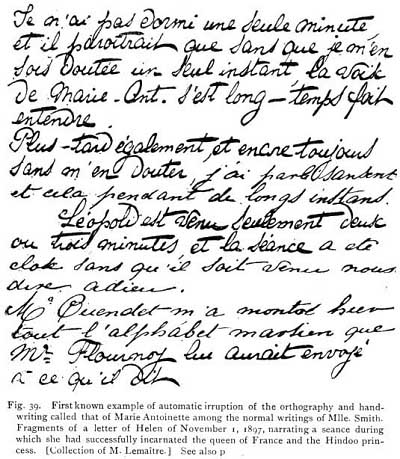 Je n'ai pas dormi une seule minute
et il paroîtrait que sans que je m'en
sois doutée un seul instant la voix
de Marie-Ant. s'est long-temps fait
entendre.
Plus-tard également, et encore toujours
sans m'en douter, j'ai parlé sanscrit
et cela pendant de longs instans.
Léopold est venu seulement deux
ou trois minutes et la séance a été
close sans qu'il soit venu nous
dire adieu.
Mr Cuendet m'a montré hier
tout l'alphabet martien que
Mr Flournoy lui aurait envoyé
à ce qu'il dit
Fig. 39. First known example of automatic irruption of the orthography and hand-
writing called that of Marie Antoinette among the normal writings of Mlle. Smith.
Fragments of a letter of Helen of November 1, 1897, narrating a seance during
which she had successfully incarnated the queen of France and the Hindoo prin-
cess. [Collection of M. Lemaître.] See also p